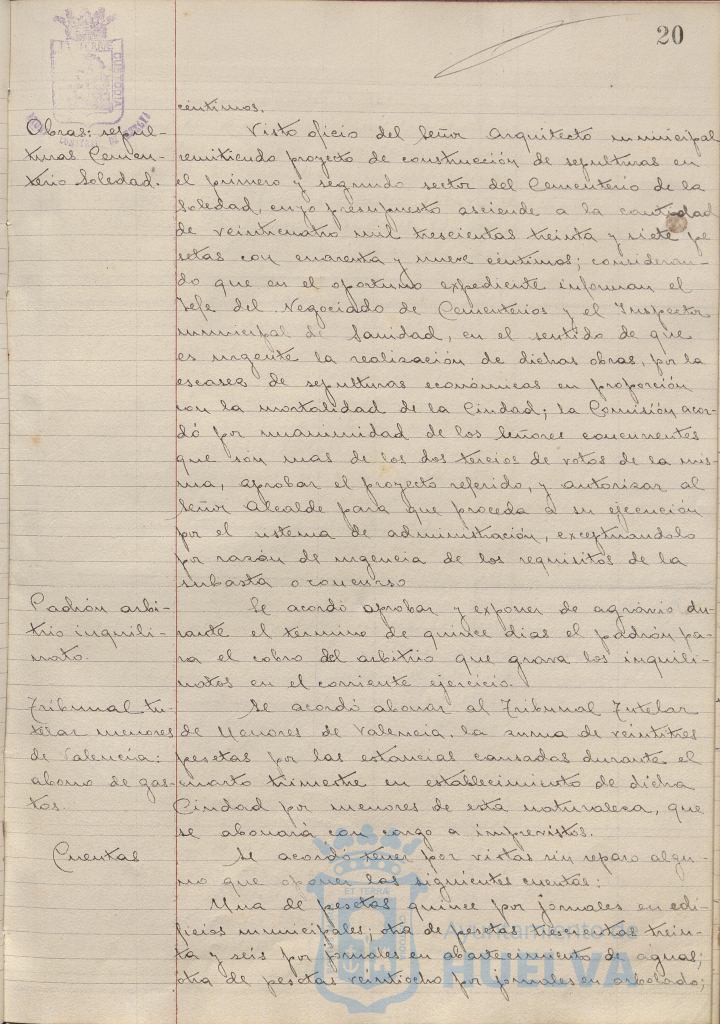 20
céntimos.
Obras: sepul-
turas Cemen-
terio Soledad.
Visto oficio del Señor Arquitecto municipal
remitiendo proyecto de construcción de sepulturas en
el primero y segundo sector del Cementerio de la
Soledad, cuyo presupuesto asciende a la cantidad
de veinticuatro mil trescientas treinta y siete pe
setas con cuarenta y nueve céntimos; consideran-
do que en el oportuno expediente informan el
Jefe del Negociado de Cementerios y el Inspector
municipal de Sanidad, en el sentido de que
es urgente la realización de dichas obras, por la
escasez de sepulturas económicas en proporción
con la mortalidad de la Ciudad; la Comisión acor-
dó por unanimidad de los Señores concurrentes
que son mas de los dos tercios de votos de la mis
ma, aprobar el proyecto referido, y autorizar al
Señor Alcalde para que proceda a su ejecución
por el sistema de administración, exceptuandolo
por razón de urgencia de los requisitos de la
subasta o concurso
Padrón arbi-
trio inquili-
nato.
Se acordó aprobar y exponer de agravio du-
rante el termino de quince dias el padrón pa-
ra el cobro del arbitrio que grava los inquili-
natos en el corriente ejercicio.
Tribunal tu-
telar menores
de Valencia:
abono de gas-
tos.
Se acordó abonar al Tribunal Tutelar
de Menores de Valencia, la suma de veintitres
pesetas por las estancias causadas durante el
cuarto trimestre en establecimiento de dicha
Ciudad por menores de esta naturaleza, que
se abonará con cargo a imprevistos.
Cuentas
Se acordó tener por vistas sin reparo algu-
no que oponer las siguientes cuentas:
Una de pesetas quince por jornales en edi-
ficios municipales; otra de pesetas trescientas trein-
ta y seis por jornales en abastecimiento de aguas;
otra de pesetas veintiocho por jornales en arbolado;
Ayuntamiento de
HUELVA